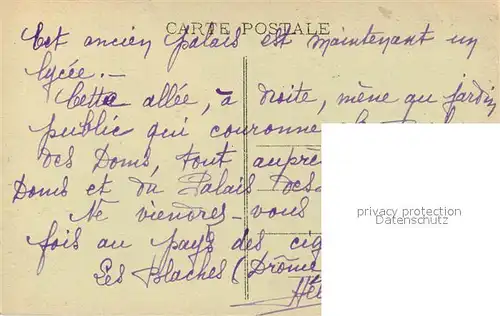 CARTE POSTALE
Cet ancien palais est maintenant un
lycée. -
Cette allée, à droite, mène au jardin
public qui couronne
des Doms, tout auprè
Doms et du Palais des
Ne viendrez-vous
fois au pays des cig
Les Blaches (Drôme
privacy protection
Datenschutz